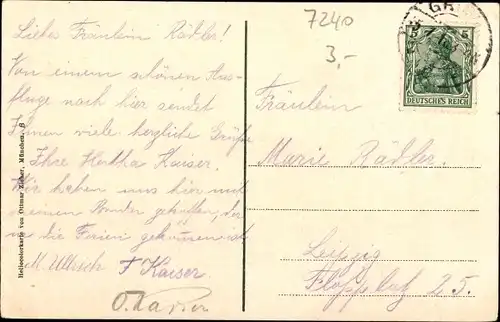 Liebes Fräulein Rädler!
Von einem schönen Aus-
fluge nach hier sendet
Ihnen viele herzliche Grüße
Ihre Hertha Kaiser.
Wir haben uns hier mit
meinem Bruder getroffen, der
in die Ferien gekommen ist.
M. Ullrich F Kaiser
7240
3,-
Fräulein
Marie Rädler.
Leipzig
25.
5 5
DEUTSCHES REICH
Heliocolorkarte von Ottmar Zieher, München. B